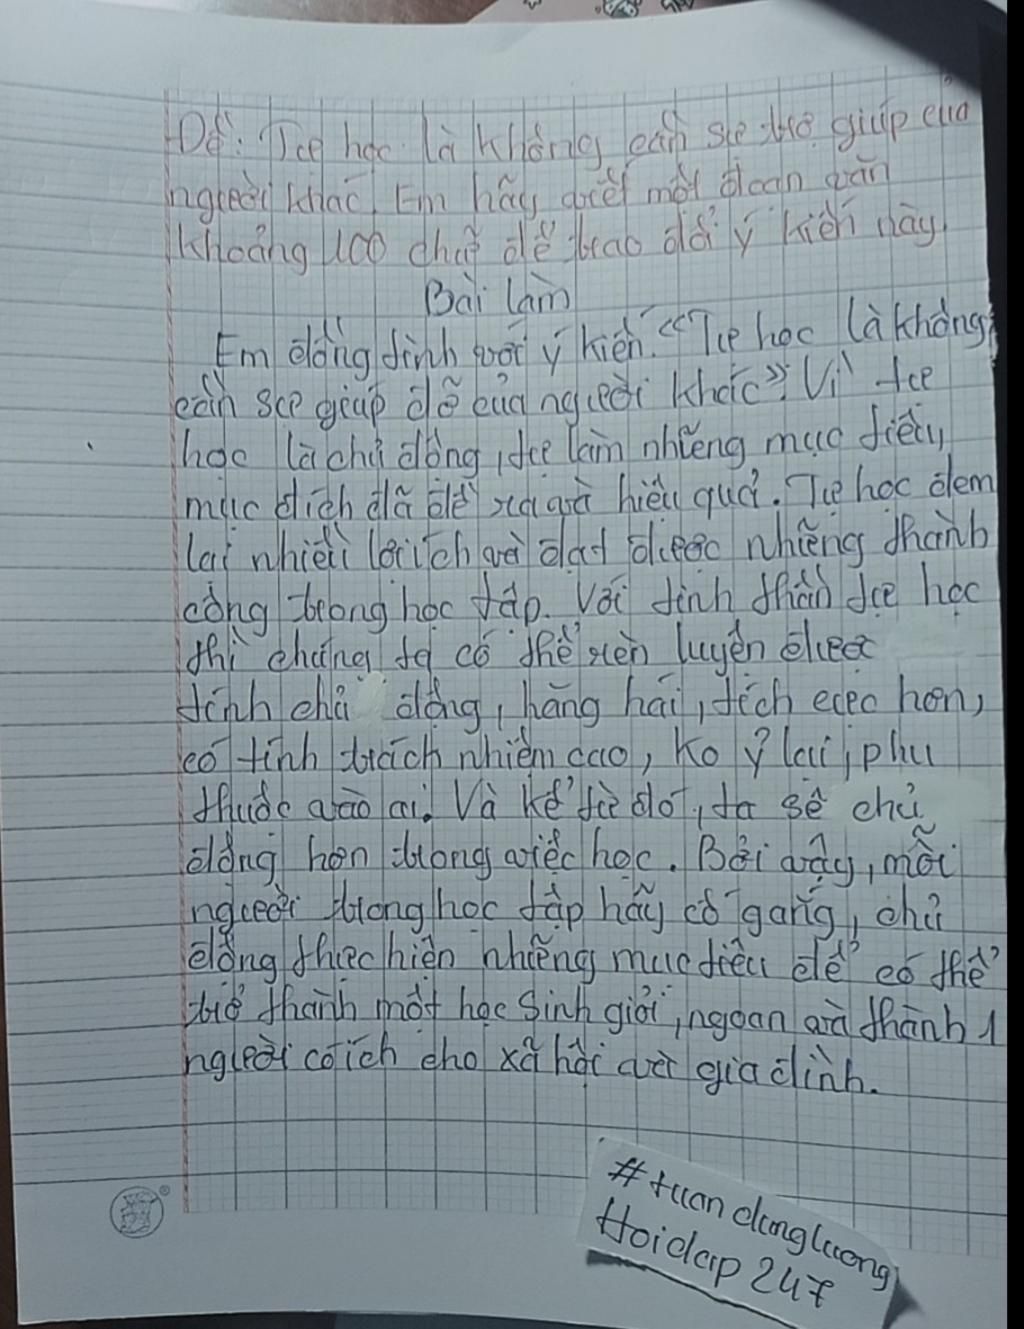 Đề: Tự học là không cần sự trợ giúp của
người khác. Em hãy viết một đoạn văn
khoảng 100 chữ để trao đổi ý kiến này.
Bài làm
Em đồng tình với ý kiến "Tự học là không
cần sự giúp đỡ của người khác" Vì tự
học là chủ động, tự làm những mục tiêu,
mục đích đã đề ra và hiệu quả. Tự học đem
lại nhiều lợi ích và đạt được những thành
công trong học tập. Với tinh thần tự học
thì chúng ta có thể rèn luyện được
tính chủ động, hăng hái, tích cực hơn,
có tính trách nhiệm cao, ko ỷ lại, phụ
thuộc vào ai. Và kể từ đó, ta sẽ chủ
động hơn trong việc học. Bởi vậy, mỗi
người trong học tập hãy cố gắng, chủ
động thực hiện những mục tiêu để có thể
trở thành một học sinh giỏi, ngoan và thành 1
người có ích cho xã hội và gia đình.
#tuandungluong
Hoidap247